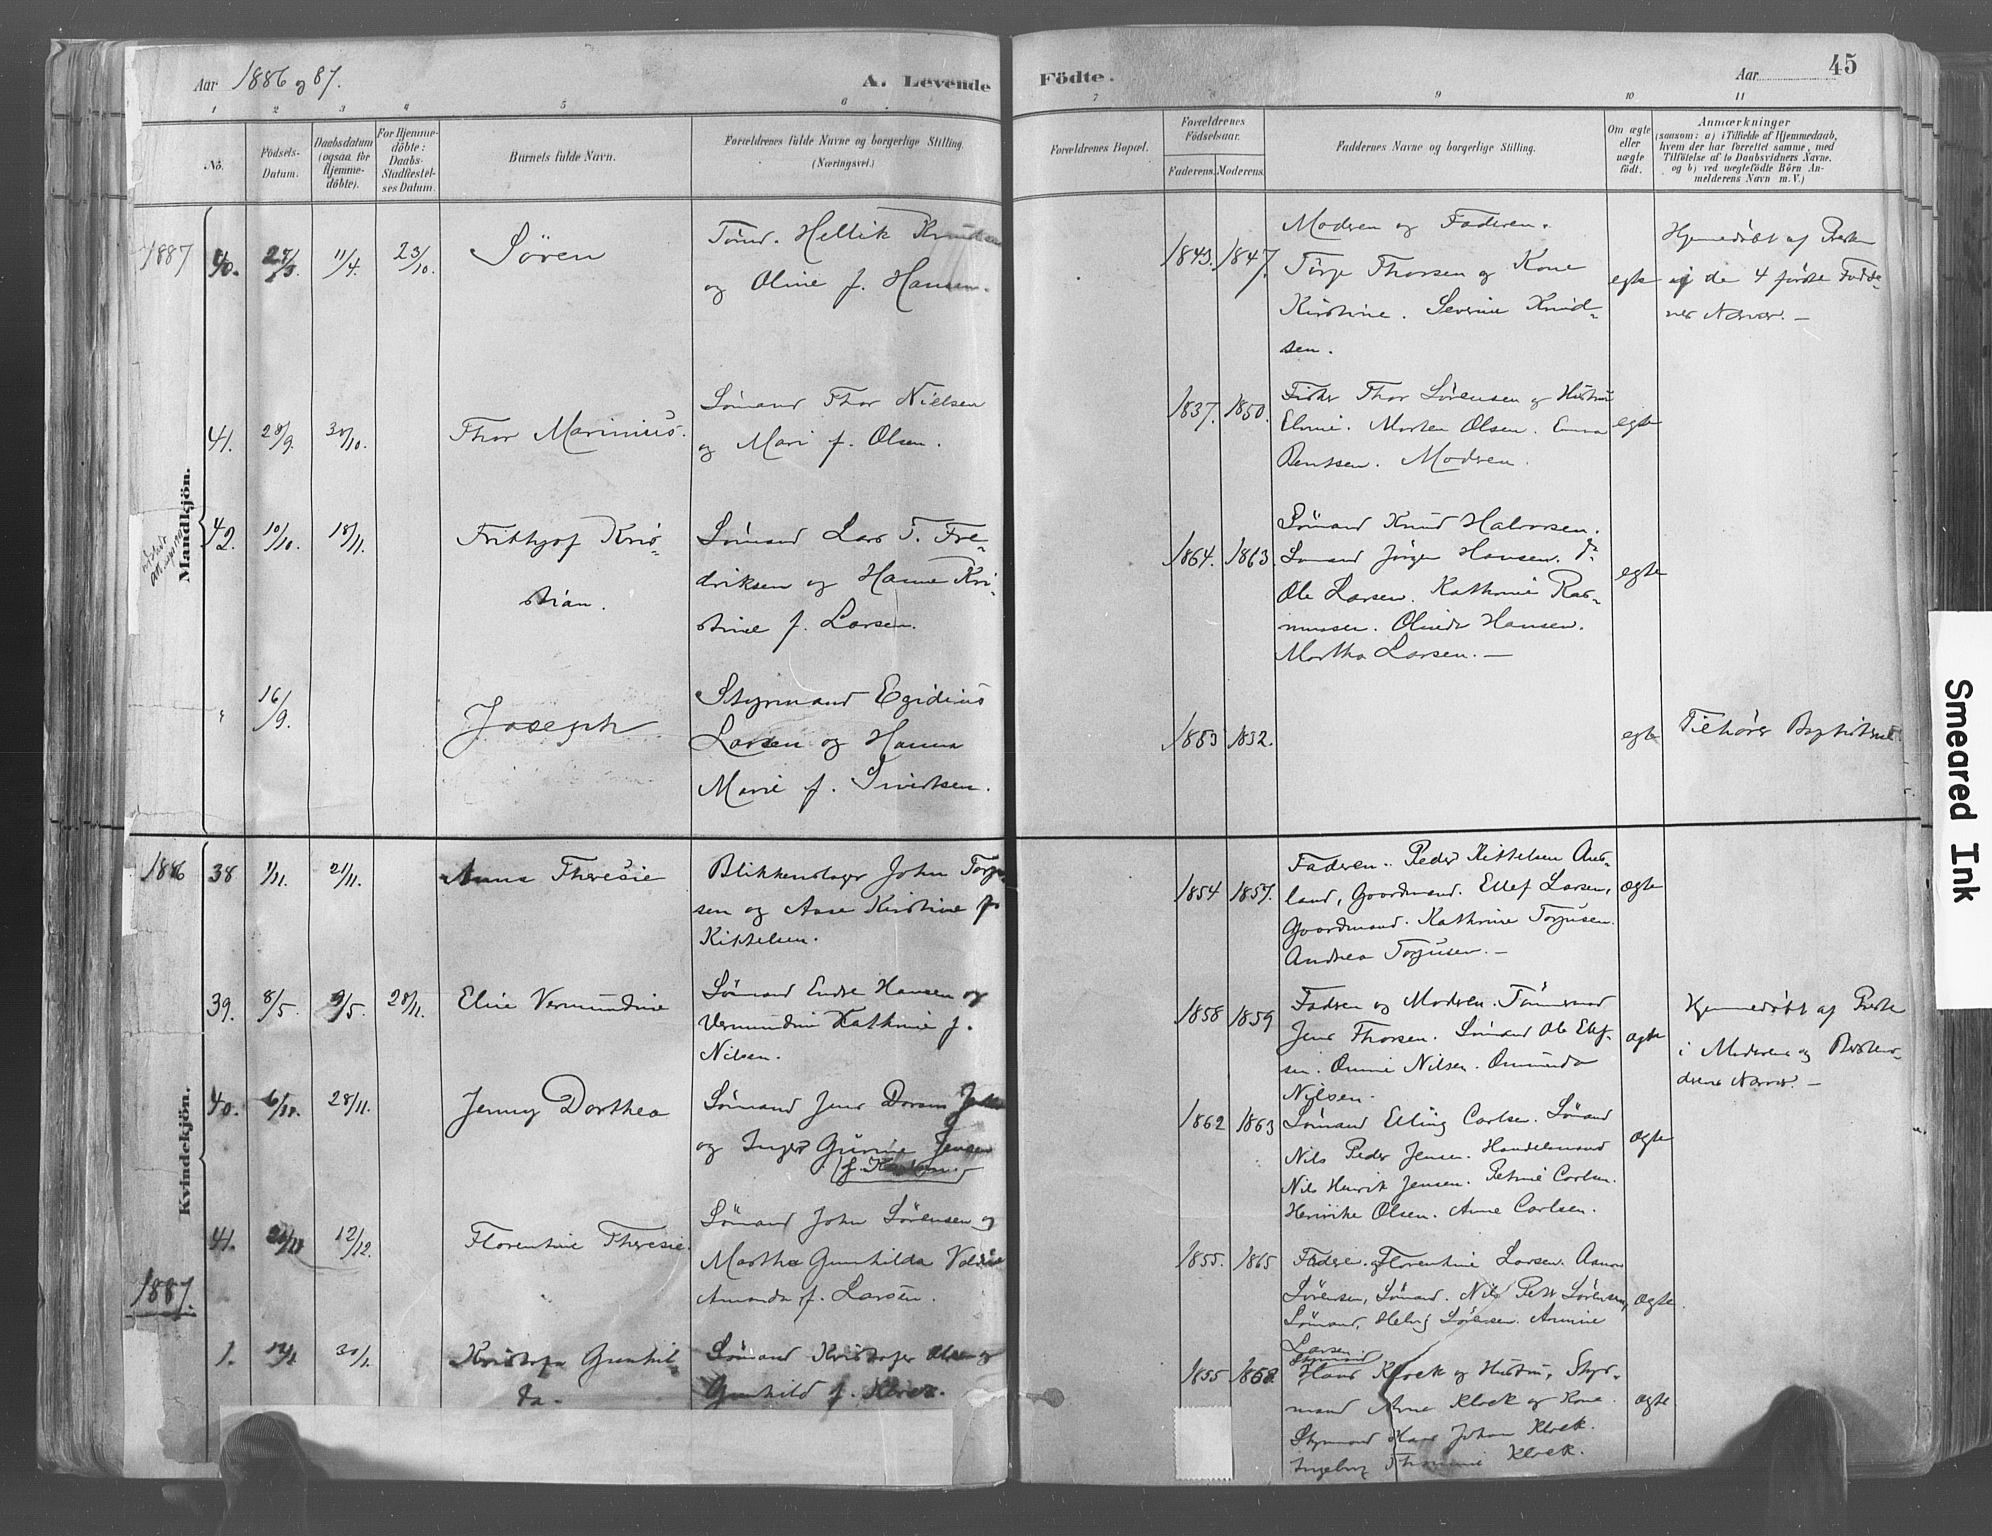 Aar 1886 og 87.
A. Levende Födte.
Aar 45
1 2 3 4 5 6 7 8 9 10 11
No.
Födsels-Datum.
Daabsdatum (ogsaa for Hjemme-döbte).
For Hjemme-döbte: Daabs-Stadfæstel-ses Datum.
Barnets fulde Navn.
Forældrenes fulde Navne og borgerlige Stilling.
(Næringsvei.)
Forældrenes Bopæl.
Forældrenes Födselsaar.
Faderens. Moderens.
Faddernes Navne og borgerlige Stilling.
Om ægte eller uægte födt.
Anmærkninger
(saasom: a) i Tilfælde af Hjemmedaab,
hvem der har forrettet samme, med
Tilföielse af to Daabsvidners Navne.
og b) ved uægtefödte Börn An-
melderens Navn m. V.)
Mandkjön.
1887
40. 11/4. 23/10. Sören
Tömd. Hellik Knudsen
og Oline f. Hansen.
1843. 1847.
Modren og Faderen.
Törje Thorsen og Kone
Kirstine. Severine Knud-
sen.
egte
Hjemmedöbt af Presten
i de 4 förste Fadde-
res Nærvær. —
41. 28/9. 30/10. Thor Marinius.
Sömand Thor Nielsen
og Mari f. Olsen.
1837. 1850.
Fisker Thor Sörensen og Hustru
Elvine. Morten Olsen. Emma
Bentsen. Modren.
egte
42. 10/10. 18/11. Frithjof Kris-
tian.
Sömand Lars T. Fre-
driksen og Hanne Kri-
stine f. Larsen.
1864. 1863.
Sömand Knud Halvorsen.
Sömand Jörgen Hansen. do
Ole Larsen. Kathrine Ras-
mussen. Olinde Hansen.
Martha Larsen. —
egte
" 16/9. Joseph
Styrmand Egidius
Larsen og Hanna
Marie f. Sivertsen.
1853 1852.
egte
Tilhörer Baptisterne.
Kvindekjön.
1886 38 1/11. 21/11. Anna Theresie
Blikkenslager John Torju-
sen og Aase Kirstine f.
Kittelsen.
1854 1857.
Faderen. Peder Kittelsen Aus-
land, Gaardmand. Ellef Larsen,
Gaardmand. Kathrine Torjusen.
Andrea Torjusen. —
ægte
39. 8/5. 9/5. 28/11. Elise Vermundine
Sömand Endre Hansen og
Vermundine Kathrine f.
Nilsen.
1858 1859
Fadren og Modren. Tömmermand
Jens Thorsen. Sömand Ole Ellef-
sen. Nilsen.
Nilsen.
ægte
Hjemmedöbt af Presten
i Moderens og Bestemo-
drens Nærvær. —
40. 6/11. 28/11. Jenny Dorthea
Sömand Jens
og Inger Gurine Jensen
1862 1863
Sömand Elling Carlsen. Sömand
Nils Peder Jensen. Handelsmand
Nils Henrik Jensen. Petrine Carlsen.
Henrikke Olsen. Anne Carlsen.
ægte
41. 12/12. Florentine Theresie.
Sömand John Sörensen og
Martha Gunhilda
Amanda f. Larsen.
1855. 1865
Fadren. Florentine Larsen.
Sörensen, Sömand. Nils Peter Sörensen,
Sömand, Helvig Sörensen.
Larsen
ægte.
1887.
1. 30/1. Kristofa Gunhil
da.
Sömand Kristofer Olsen og
Gunhild f. Klock.
1855 1858
Styrmand
Hans Klock og Hustru, Styr-
mand Arne Klock og Kone.
Styrmand Hans Johan Klock.
Ingeborg Klock.
ægte
Smeared Ink